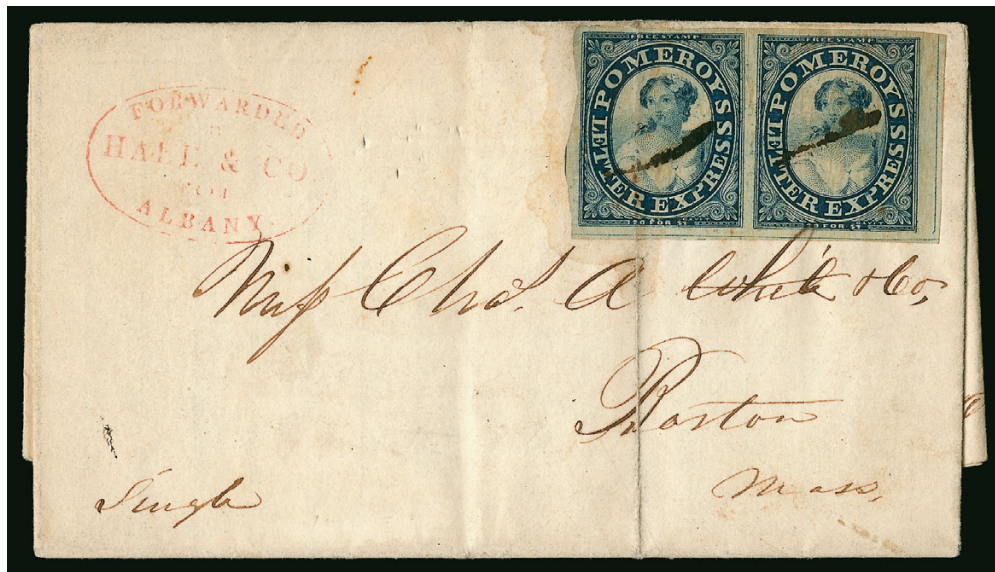 FORWARDED
BY
HALE & CO
FOR
ALBANY
FREE STAMP
POMEROYS
LETTER EXPRESS
20 FOR $1
FREE STAMP
POMEROYS
LETTER EXPRESS
20 FOR $1
Mess Chas. A White & Co,
Boston
Mass,
Single